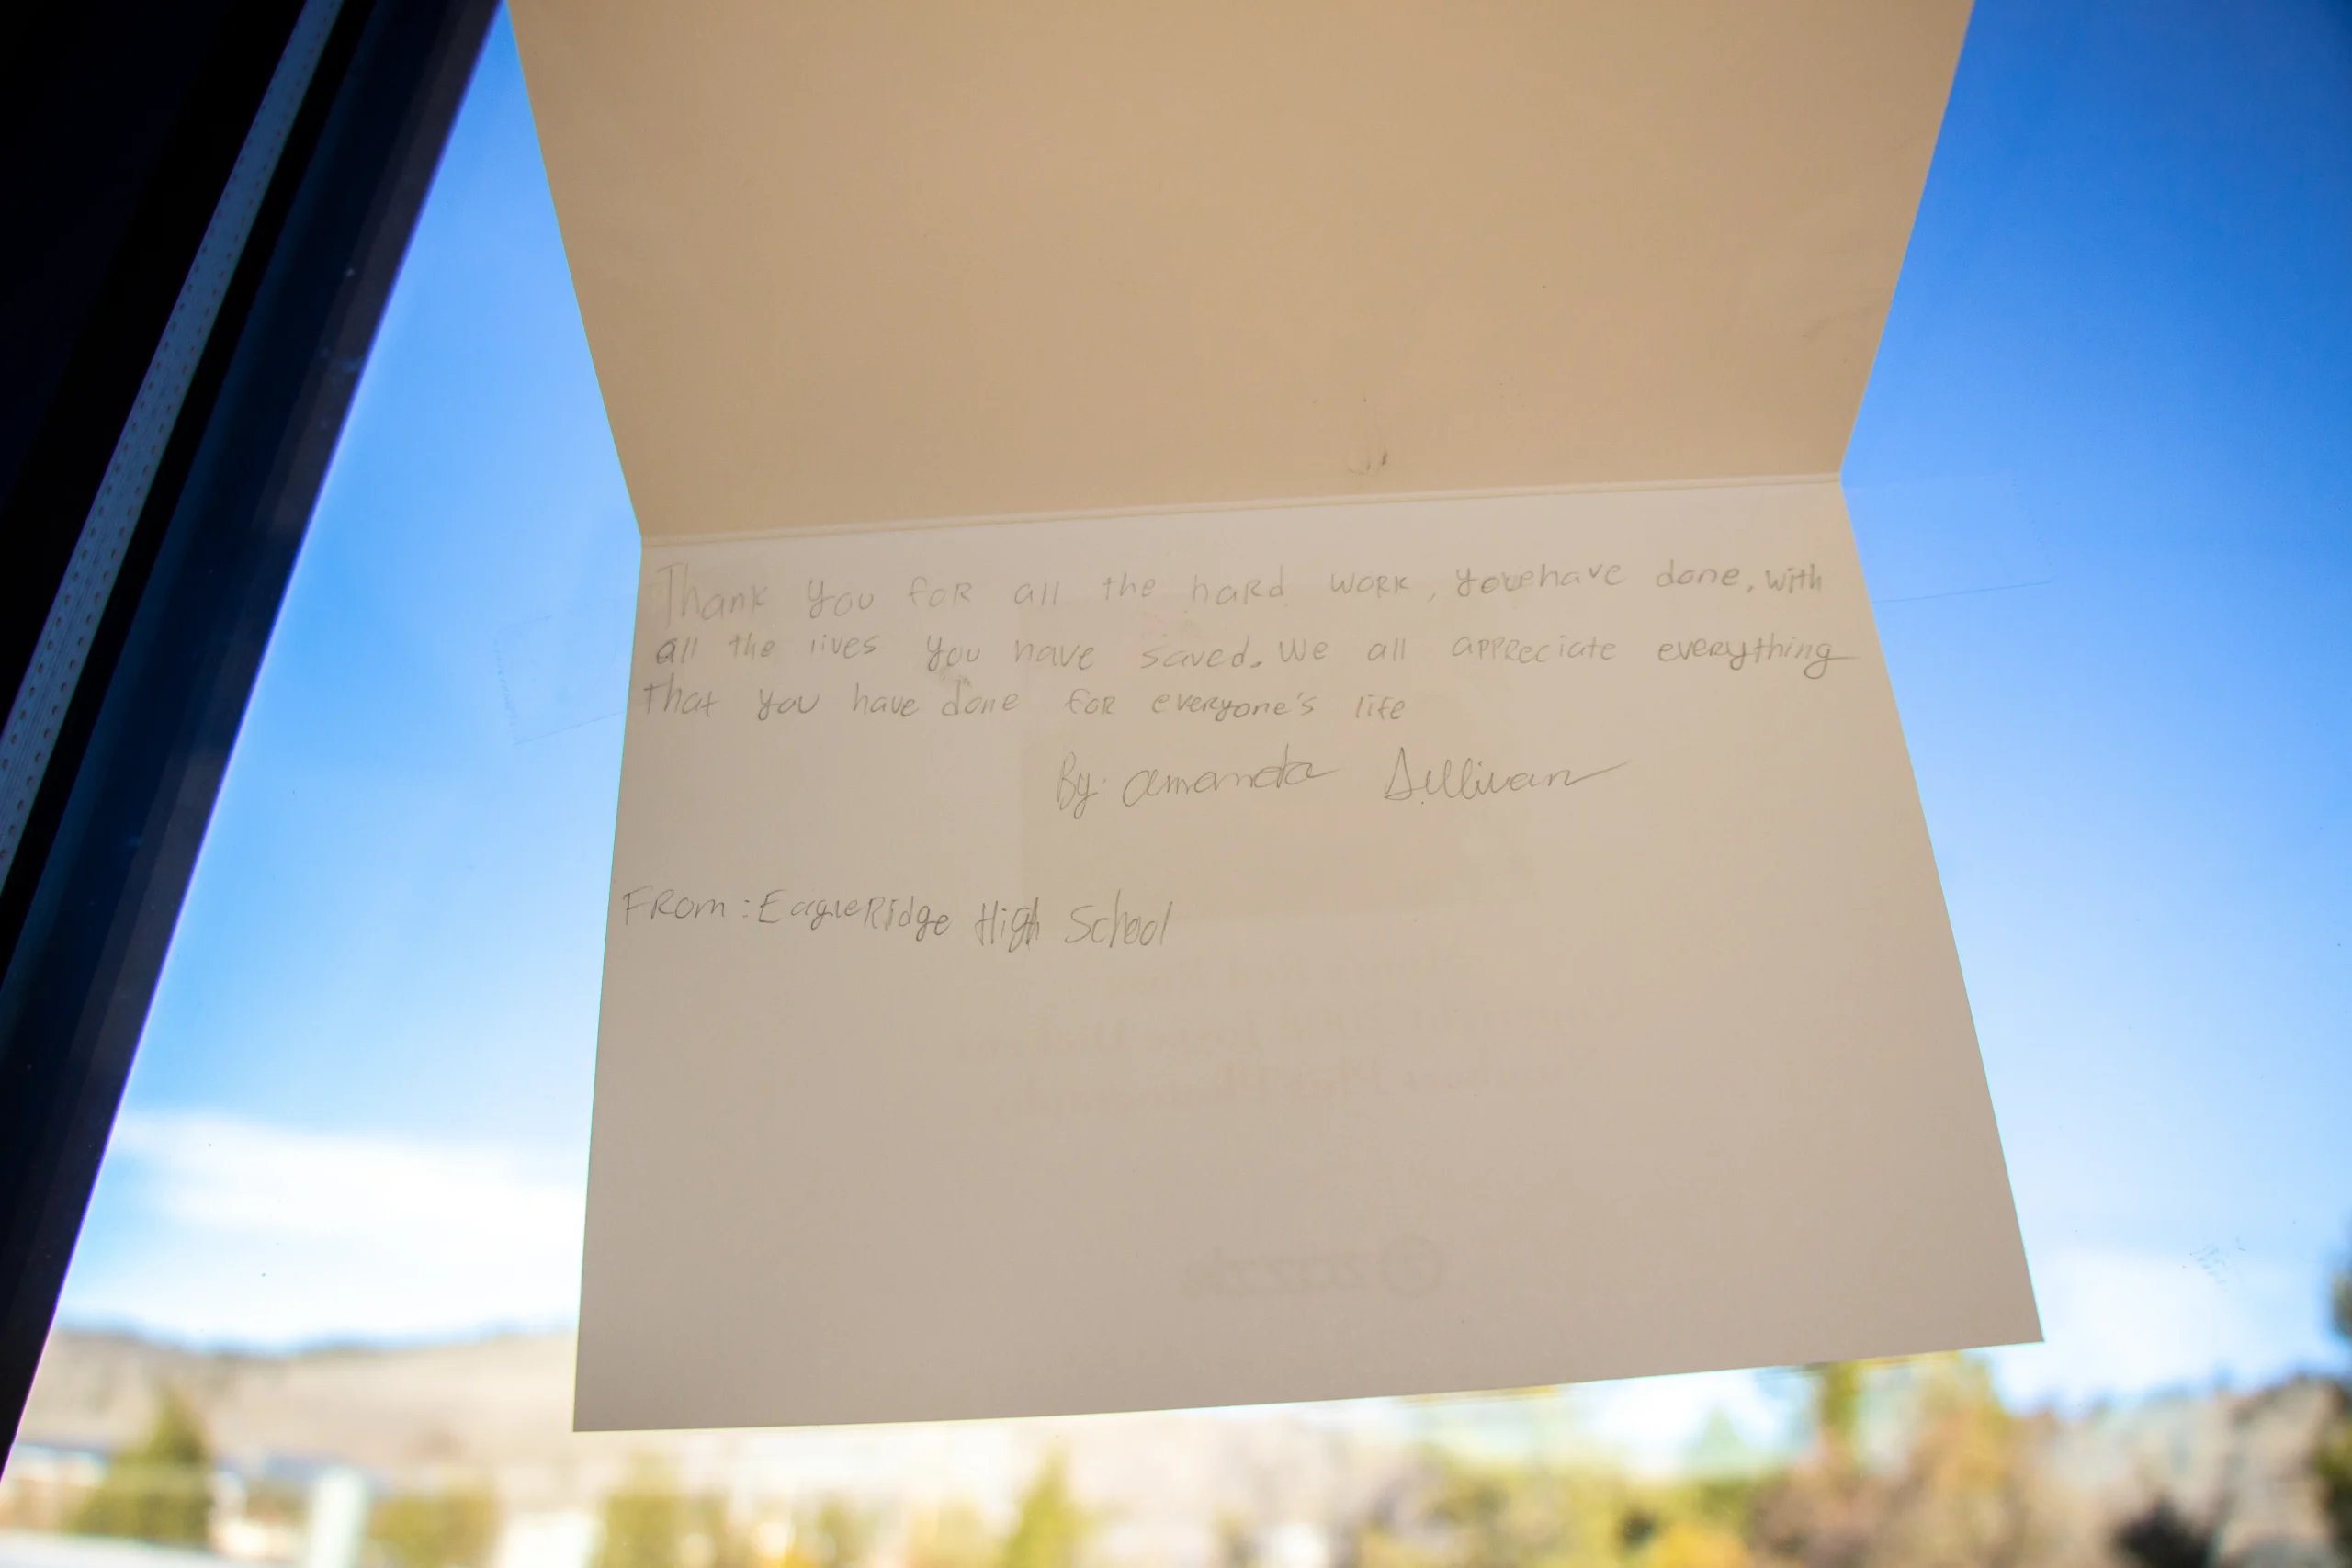 Thank you for all the hard work, you have done, with
all the lives you have saved. We all appreciate everything
that you have done for everyone's life
By: amanda Sullivan
From: EagleRidge High School
zazzle